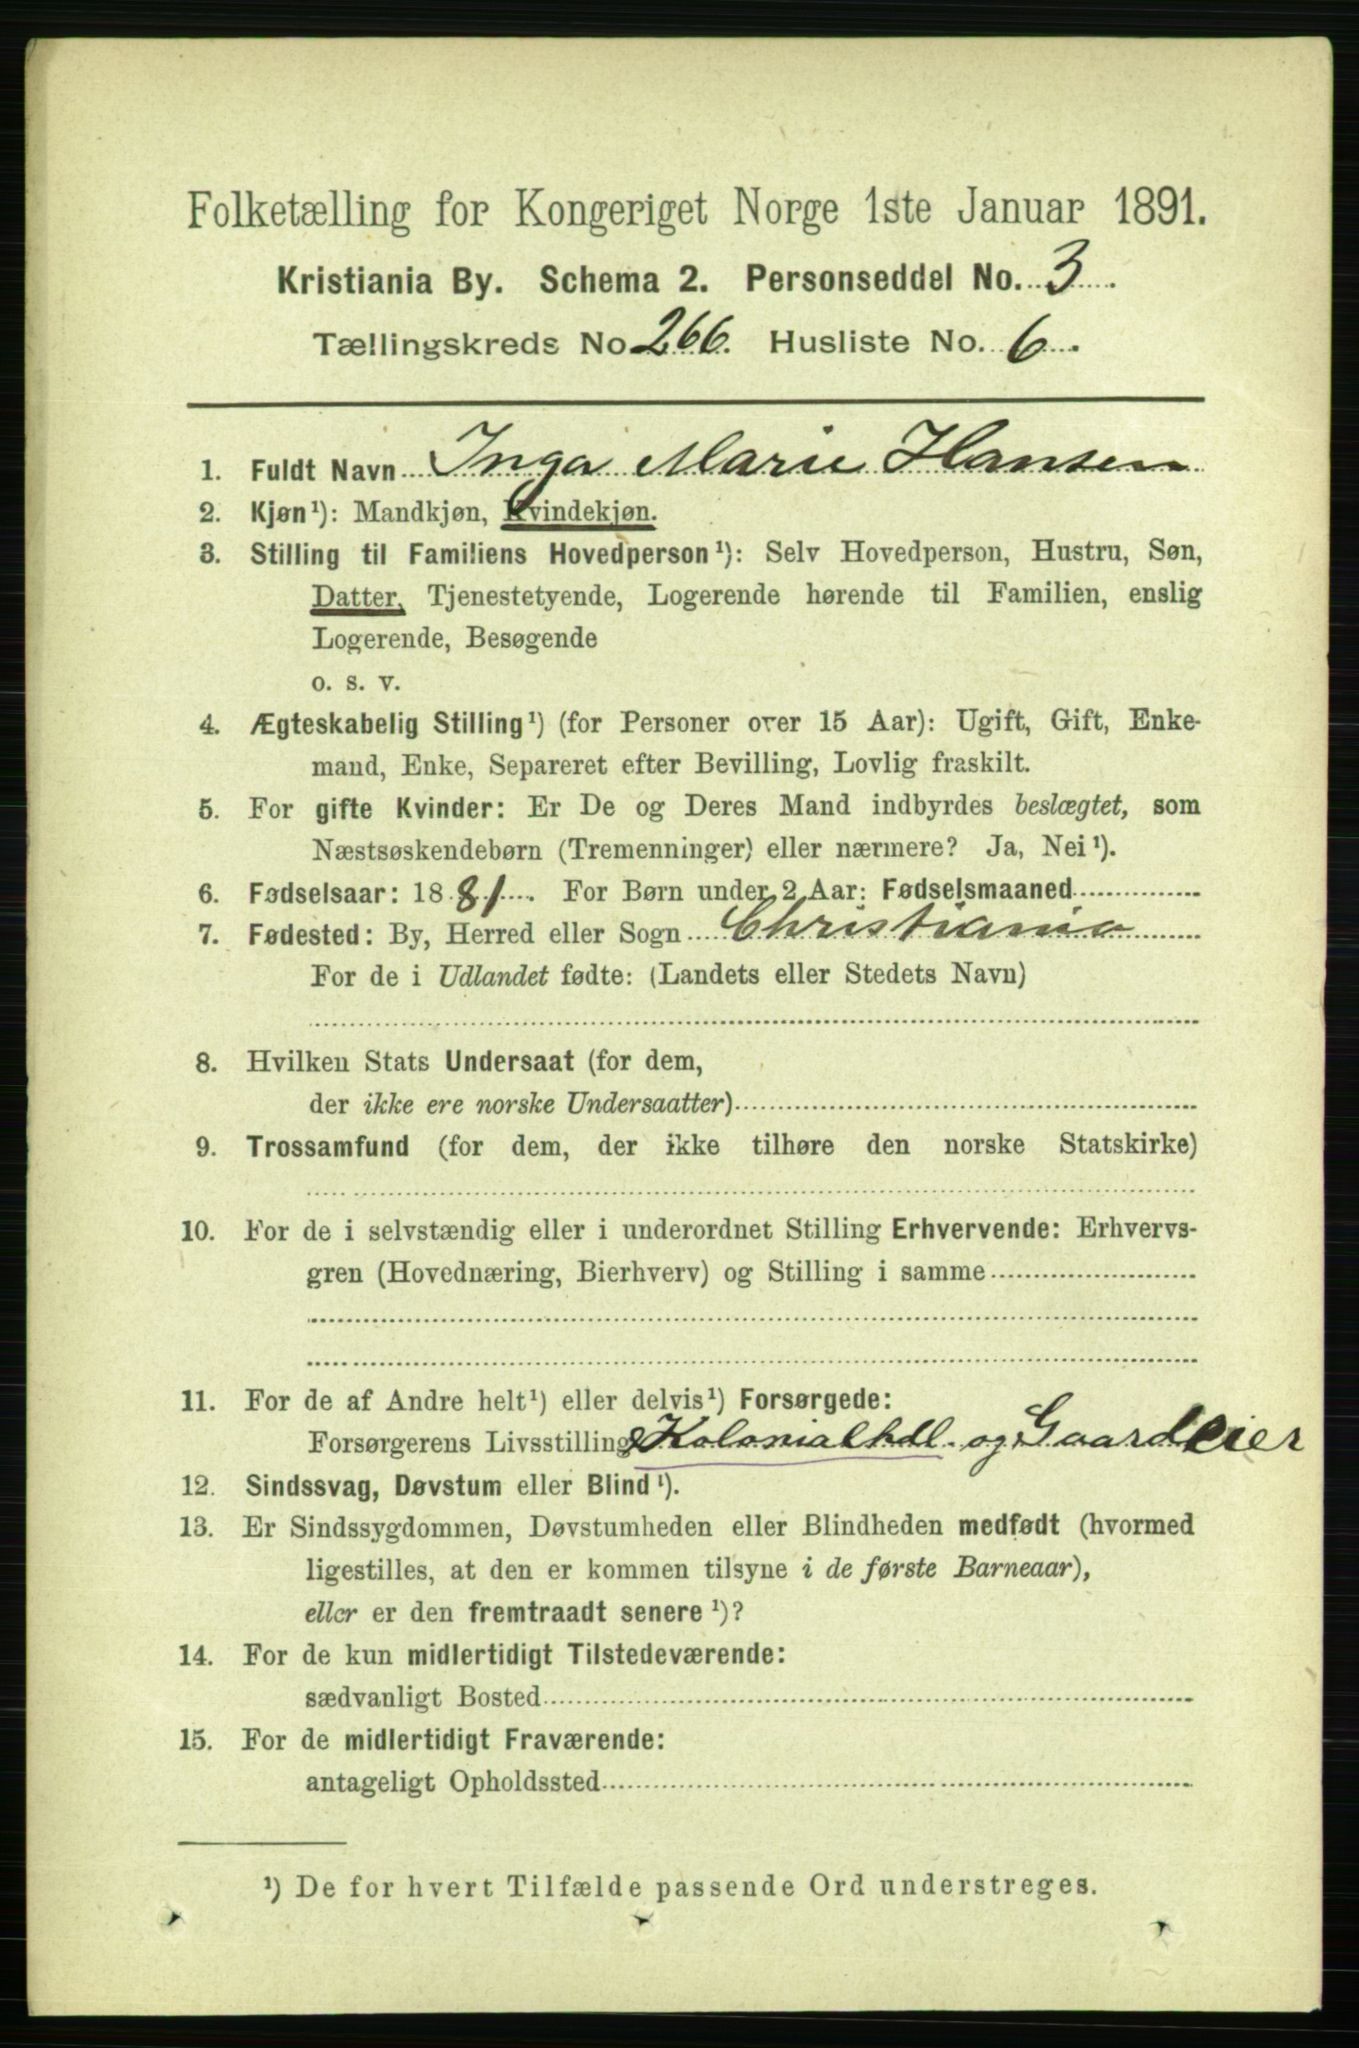 Folketælling for Kongeriget Norge 1ste Januar 1891.
Kristiania By. Schema 2. Personseddel No. 3
Tællingskreds No 266. Husliste No. 6
1. Fuldt Navn Inga Marie Hansen
2. Kjøn¹): Mandkjøn, Kvindekjøn.
3. Stilling til Familiens Hovedperson¹): Selv Hovedperson, Hustru, Søn,
Datter, Tjenestetyende, Logerende hørende til Familien, enslig
Logerende, Besøgende
o. s. v.
4. Ægteskabelig Stilling¹) (for Personer over 15 Aar): Ugift, Gift, Enke-
mand, Enke, Separeret efter Bevilling, Lovlig fraskilt.
5. For gifte Kvinder: Er De og Deres Mand indbyrdes beslægtet, som
Næstsøskendebørn (Tremenninger) eller nærmere? Ja, Nei¹).
6. Fødselsaar: 1881. For Børn under 2 Aar: Fødselsmaaned
7. Fødested: By, Herred eller Sogn Christiania
For de i Udlandet fødte: (Landets eller Stedets Navn)
8. Hvilken Stats Undersaat (for dem,
der ikke ere norske Undersaatter)
9. Trossamfund (for dem, der ikke tilhøre den norske Statskirke)
10. For de i selvstændig eller i underordnet Stilling Erhvervende: Erhvervs-
gren (Hovednæring, Bierhverv) og Stilling i samme
11. For de af Andre helt¹) eller delvis¹) Forsørgede:
Forsørgerens Livsstilling Kolonialhdl. og Gaardeier
12. Sindssvag, Døvstum eller Blind¹).
13. Er Sindssygdommen, Døvstumheden eller Blindheden medfødt (hvormed
ligestilles, at den er kommen tilsyne i de første Barneaar),
eller er den fremtraadt senere¹)?
14. For de kun midlertidigt Tilstedeværende:
sædvanligt Bosted
15. For de midlertidigt Fraværende:
antageligt Opholdssted
¹) De for hvert Tilfælde passende Ord understreges.